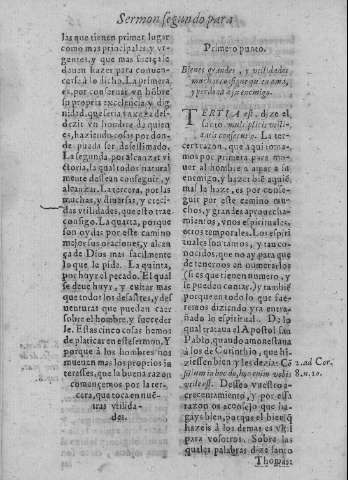 Sermon segundo para
las que tienen primer lugar
como mas principales, y vr-
gentes, y que mas fuerça le
deuan hazer para conuen-
cerse à lo dicho. La primera,
es, por conseruar vn hõbre
su propria excelencia, y dig
nidad, que seria vaxeza des-
dezir vn hombre de quien
es, haziendo cosas por don-
de pueda ser desestimado.
La segunda, por alcançar vi
ctoria, la qual todos natural
mente dessean conseguir, y
alcançar. La tercera, por las
muchas, y diuersas, y creci-
das vtilidades, que esto trae
consigo. La quarta, porque
son oydas por este camino
mejor sus oraciones, y alcan
ça de Dios mas facilmente
lo que le pide. La quinta,
por huyr el pecado. El qual
se deue huyr, y euitar mas
que todos los desastres, y des
uenturas que puedan caer
sobre el hombre, y succeder
le. Estas cinco cosas hemos
de platicar en este sermon. Y
porque à los hombres nos
mueuen mas los proprios in
teresses, que la buena razon
començemos por la ter-
cera, que toca en nue-
stras vtilida-
des.
Primero punto.
Bienes grandes, y vtilidades
muchas consigue quien ama,
y perdona a su enemigo.
TERTIA est, dize el
santo, multiplicis vtili-
tatis consequutio. La ter-
cera razon, que aqui toma-
mos por primera para mo-
uer al hombre a amar a su
enemigo, y hazer biẽ a quiẽ
mal la haze, es por conse-
guir por este camino mu-
chos, y grandes aprouecha-
mientos, vnos espirituales, y
otros temporales. Los espiri
tuales son tantos, y tan co-
nocidos, que no ay para que
detenernos en numerarlos
(si es que tienen numero, y
se pueden contar,) y tambiẽ
porque en todo lo que fue-
remos diziendo yra entra-
ñado lo espiritual. De lo
qual trataua el Apostol san
Pablo, quando amonestaua
à los de Corintho, que hi-
ziessen bien y les dezia: Cõ
silium in hoc do, hoc enim vobis
vtile est. Desseo vuestro a-
crecentamiento, y por essa
razon os aconsejo que ha-
gays bien, porque el bien q̃
hazeis à los demas es vtil
para vosotros. Sobre las
quales palabras dize santo
Thomas:
2. ad Cor.
8. n. 10.